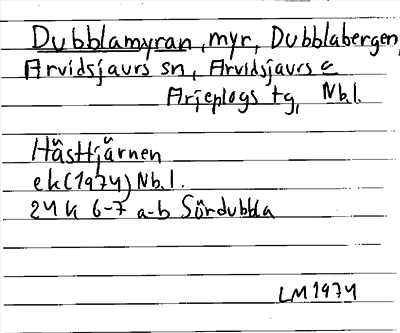 Dubblamyran, myr, Dubblabergen,
Arvidsjaurs sn, Arvidsjaurs o
Arjeplogs tg, Nb.l.
Hästtjärnen
ek (1974) Nb.l.
24 k 6-7 a-b Sördubbla
LM 1974